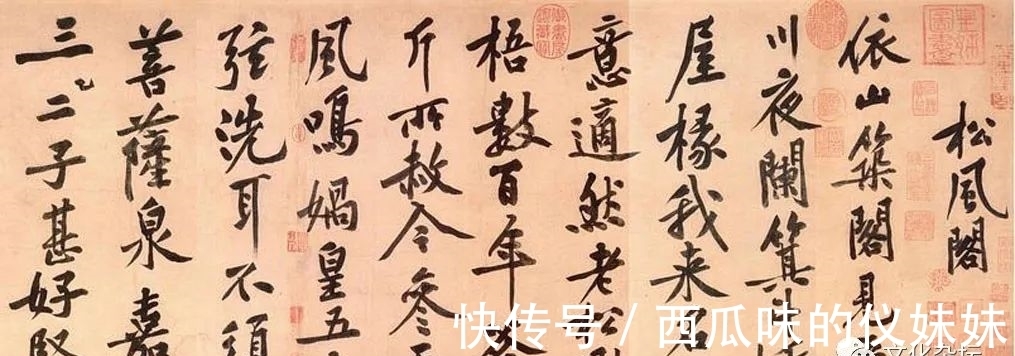 松風閣
依山築閣見
川夜闌箕
屋椽我来
意適然老松
梧數百年
斤所赦今参
風鳴媧皇五
弦洗耳不須
菩薩泉嘉
三二子甚好賢
快传号 / 西瓜味的仪妹妹